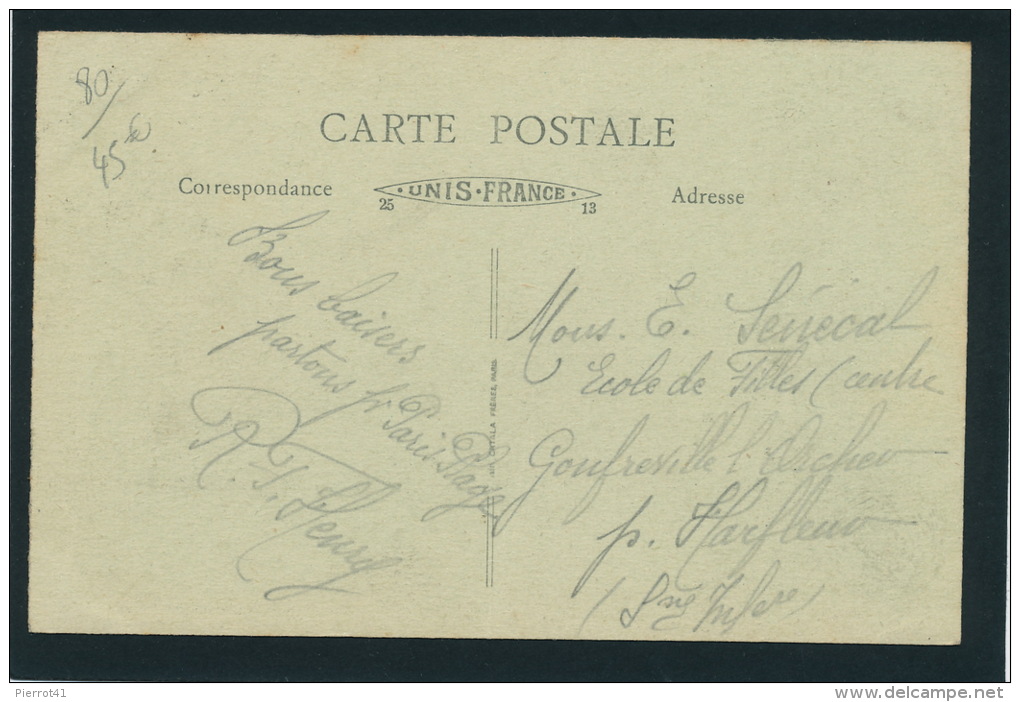 80/
45
CARTE POSTALE
Correspondance
UNIS·FRANCE
25
13
Adresse
Bons baisers
partons pr Paris Plage
R. T. Henry
CATALA FRÈRES, PARIS
Mons. E. Sénécal
Ecole de Filles (centre
Gonfreville l'Orcher
p. Harfleur
(Sne Infere)
Pierrot41
http://www.delcampe.net